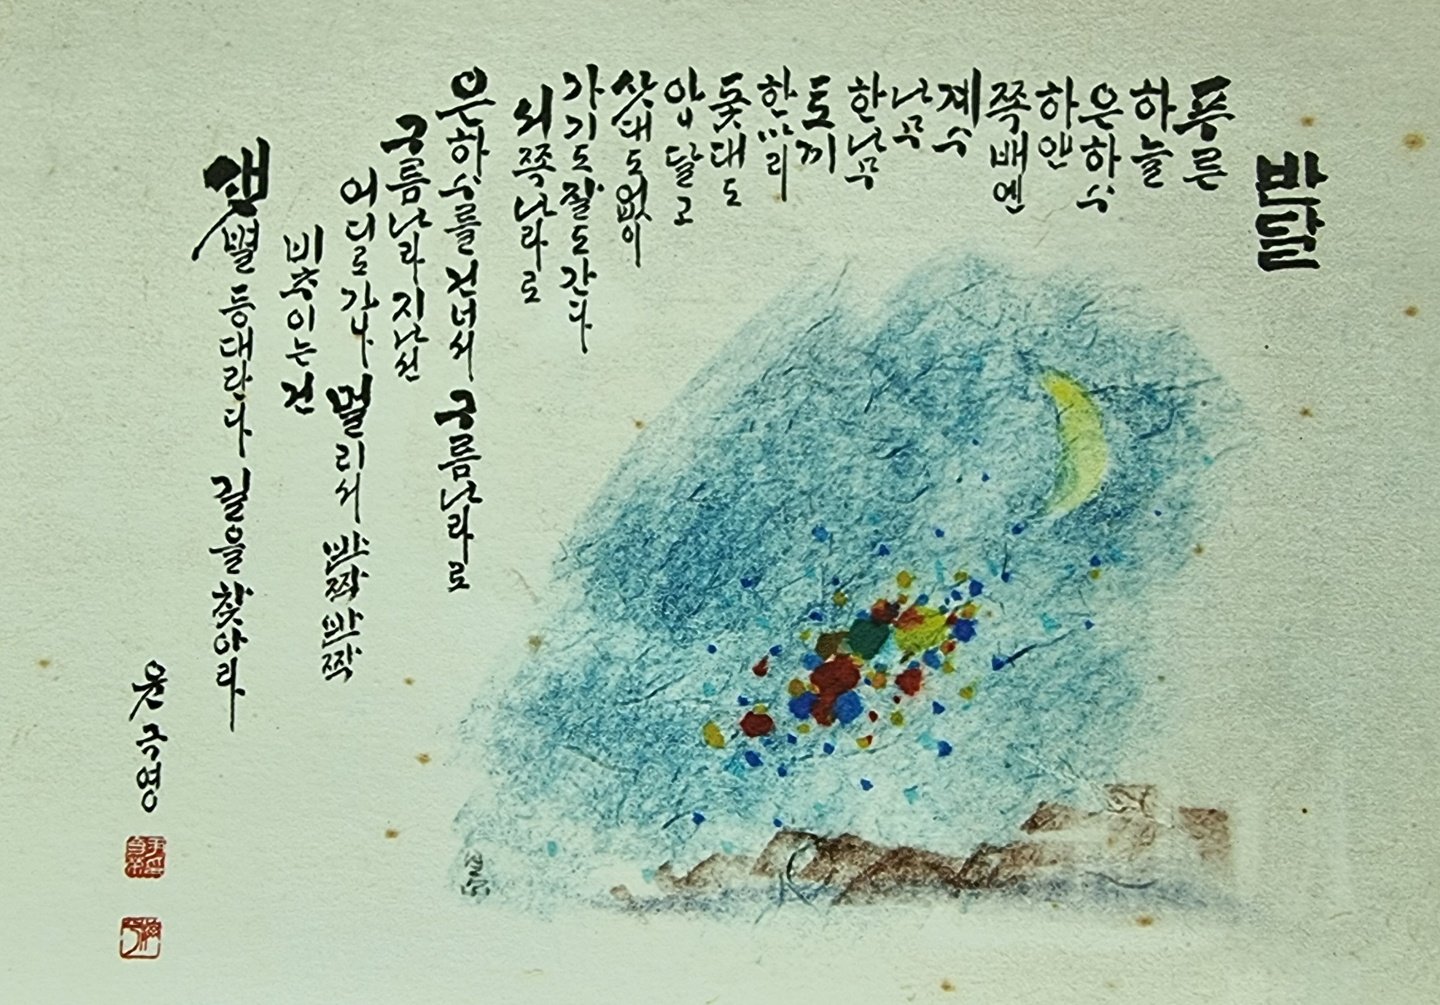 반달
푸른
하늘
은하수
하얀
쪽배엔
계수
나무
한나무
토끼
한마리
돛대도
아니달고
삿대도없이
가기도잘도간다
서쪽나라로
은하수를건너서 구름나라로
구름나라지나선
어디로가나 멀리서 반짝반짝
비추이는건
샛별 등대란다 길을 찾아라
윤극영